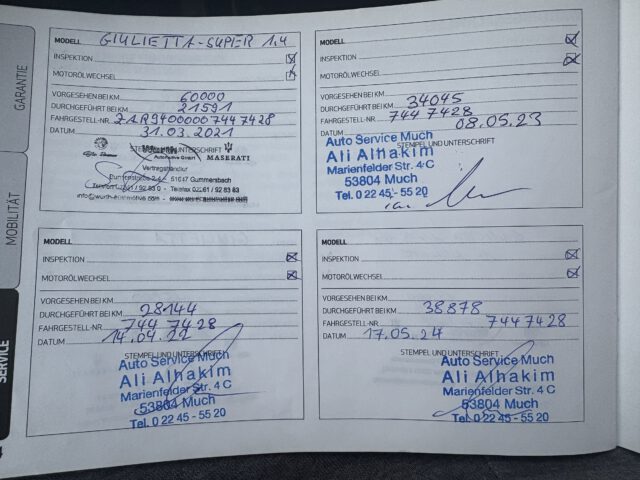 GARANTIE
MOBILITÄT
SERVICE
MODELL GIULIETTA-SUPER 1,4
INSPEKTION
MOTORÖLWECHSEL
VORGESEHEN BEI KM 60000
DURCHGEFÜHRT BEI KM 21591
FAHRGESTELL-NR. ZAR94000007447428
DATUM 31.03.2021
STEMPEL UND UNTERSCHRIFT
MASERATI
Automotive GmbH
Vertragshändler
51647 Gummersbach
MODELL
INSPEKTION
MOTORÖLWECHSEL
VORGESEHEN BEI KM
DURCHGEFÜHRT BEI KM 34045
FAHRGESTELL-NR. 7447428
DATUM 08.05.23
STEMPEL UND UNTERSCHRIFT
Auto Service Much
Ali Alhakim
Marienfelder Str. 4 C
53804 Much
Tel. 0 22 45 - 55 20
MODELL
INSPEKTION
MOTORÖLWECHSEL
VORGESEHEN BEI KM
DURCHGEFÜHRT BEI KM 28144
FAHRGESTELL-NR 7447428
DATUM 14.04.22
STEMPEL UND UNTERSCHRIFT
Auto Service Much
Ali Alhakim
Marienfelder Str. 4 C
53804 Much
Tel. 0 22 45 - 55 20
MODELL
INSPEKTION
MOTORÖLWECHSEL
VORGESEHEN BEI KM
DURCHGEFÜHRT BEI KM 38878
FAHRGESTELL-NR. 7447428
DATUM 17.05.24
STEMPEL UND UNTERSCHRIFT
Auto Service Much
Ali Alhakim
Marienfelder Str. 4 C
53804 Much
Tel. 0 22 45 - 55 20